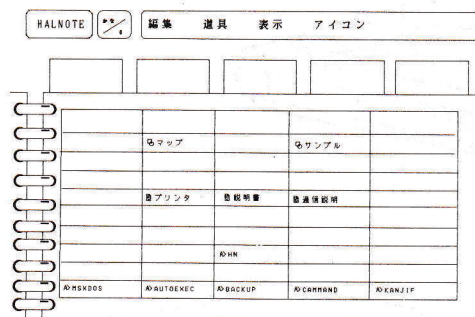 HALNOTE かな/ 編集 道具 表示 アイコン
マップ サンプル
プリンタ 説明書 通信説明
HN
MSXDOS AUTOEXEC BACKUP CAMMAND KANJIF